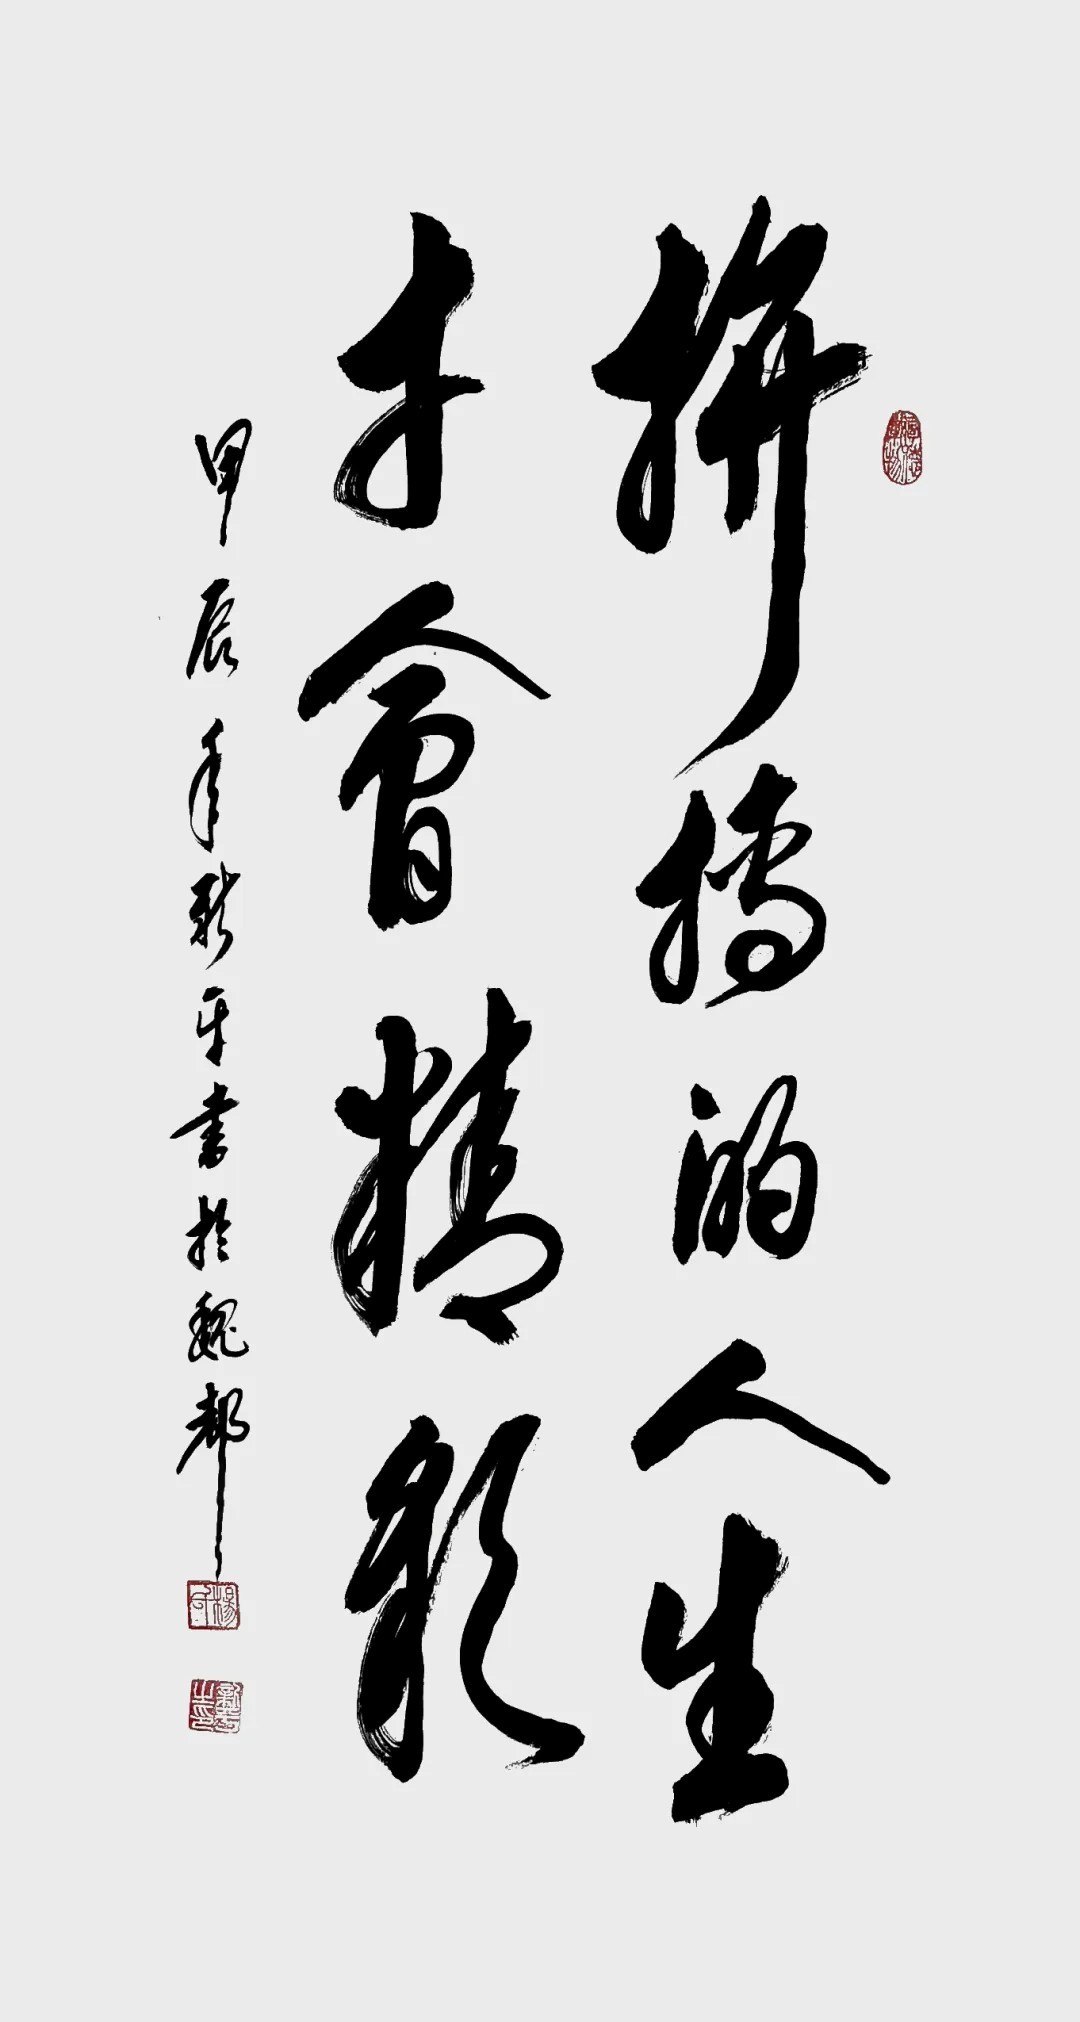 拼搏的人生
才會精彩
甲辰年新平書於魏都